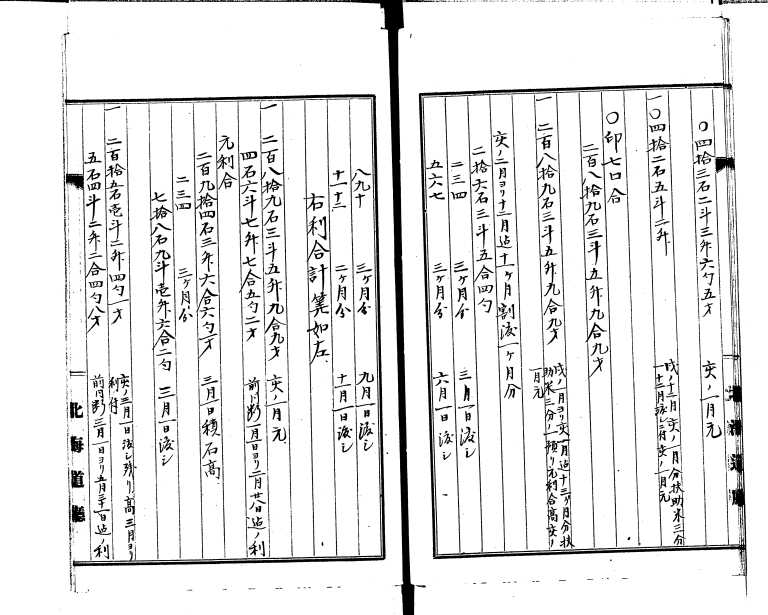 〇四拾三石二斗三升六勺五才　亥ノ一月元
一〇四拾二石五斗二升　戌ノ十二月亥ノ一月分扶助米三分
十二月渡シニ付亥ノ一月元
〇印七口合
二百八拾九石三斗五升九合九才
一　二百八拾九石三斗五升九合九才　戌ノ一月ヨリ亥ノ一月迠十三ヶ月分扶
助米三分ノ一預リ元利合高亥ノ
一月元
亥ノ二月ヨリ十二月迠十一ヶ月割渡一ヶ月分
二拾六石三斗五合四勺
二三四　三ヶ月分　三月一日渡シ
五六七　三ヶ月分　六月一日渡シ
八九十　三ヶ月分　九月一日渡シ
十一十二　二ヶ月分　十月一日渡シ
右利合計算如左
一　二百八拾九石三斗五升九合九才　亥ノ一月元
四石六斗七升七合五勺二才　前同断一月一日ヨリ二月廿八日迠ノ利
元利合
二百九拾四石三升六合六勺一才　三月一日積石高
二三四　三ヶ月分
七拾八石九斗壱升六合二勺　三月一日渡シ
一　二百拾五石壱斗二升四勺一才　亥ノ三月一日渡シ残リ高三月ヨリ
利付
五石四斗二升二合四勺八才　前同断三月一日ヨリ五月三十一日迠ノ利
北海道廳
北海道廳